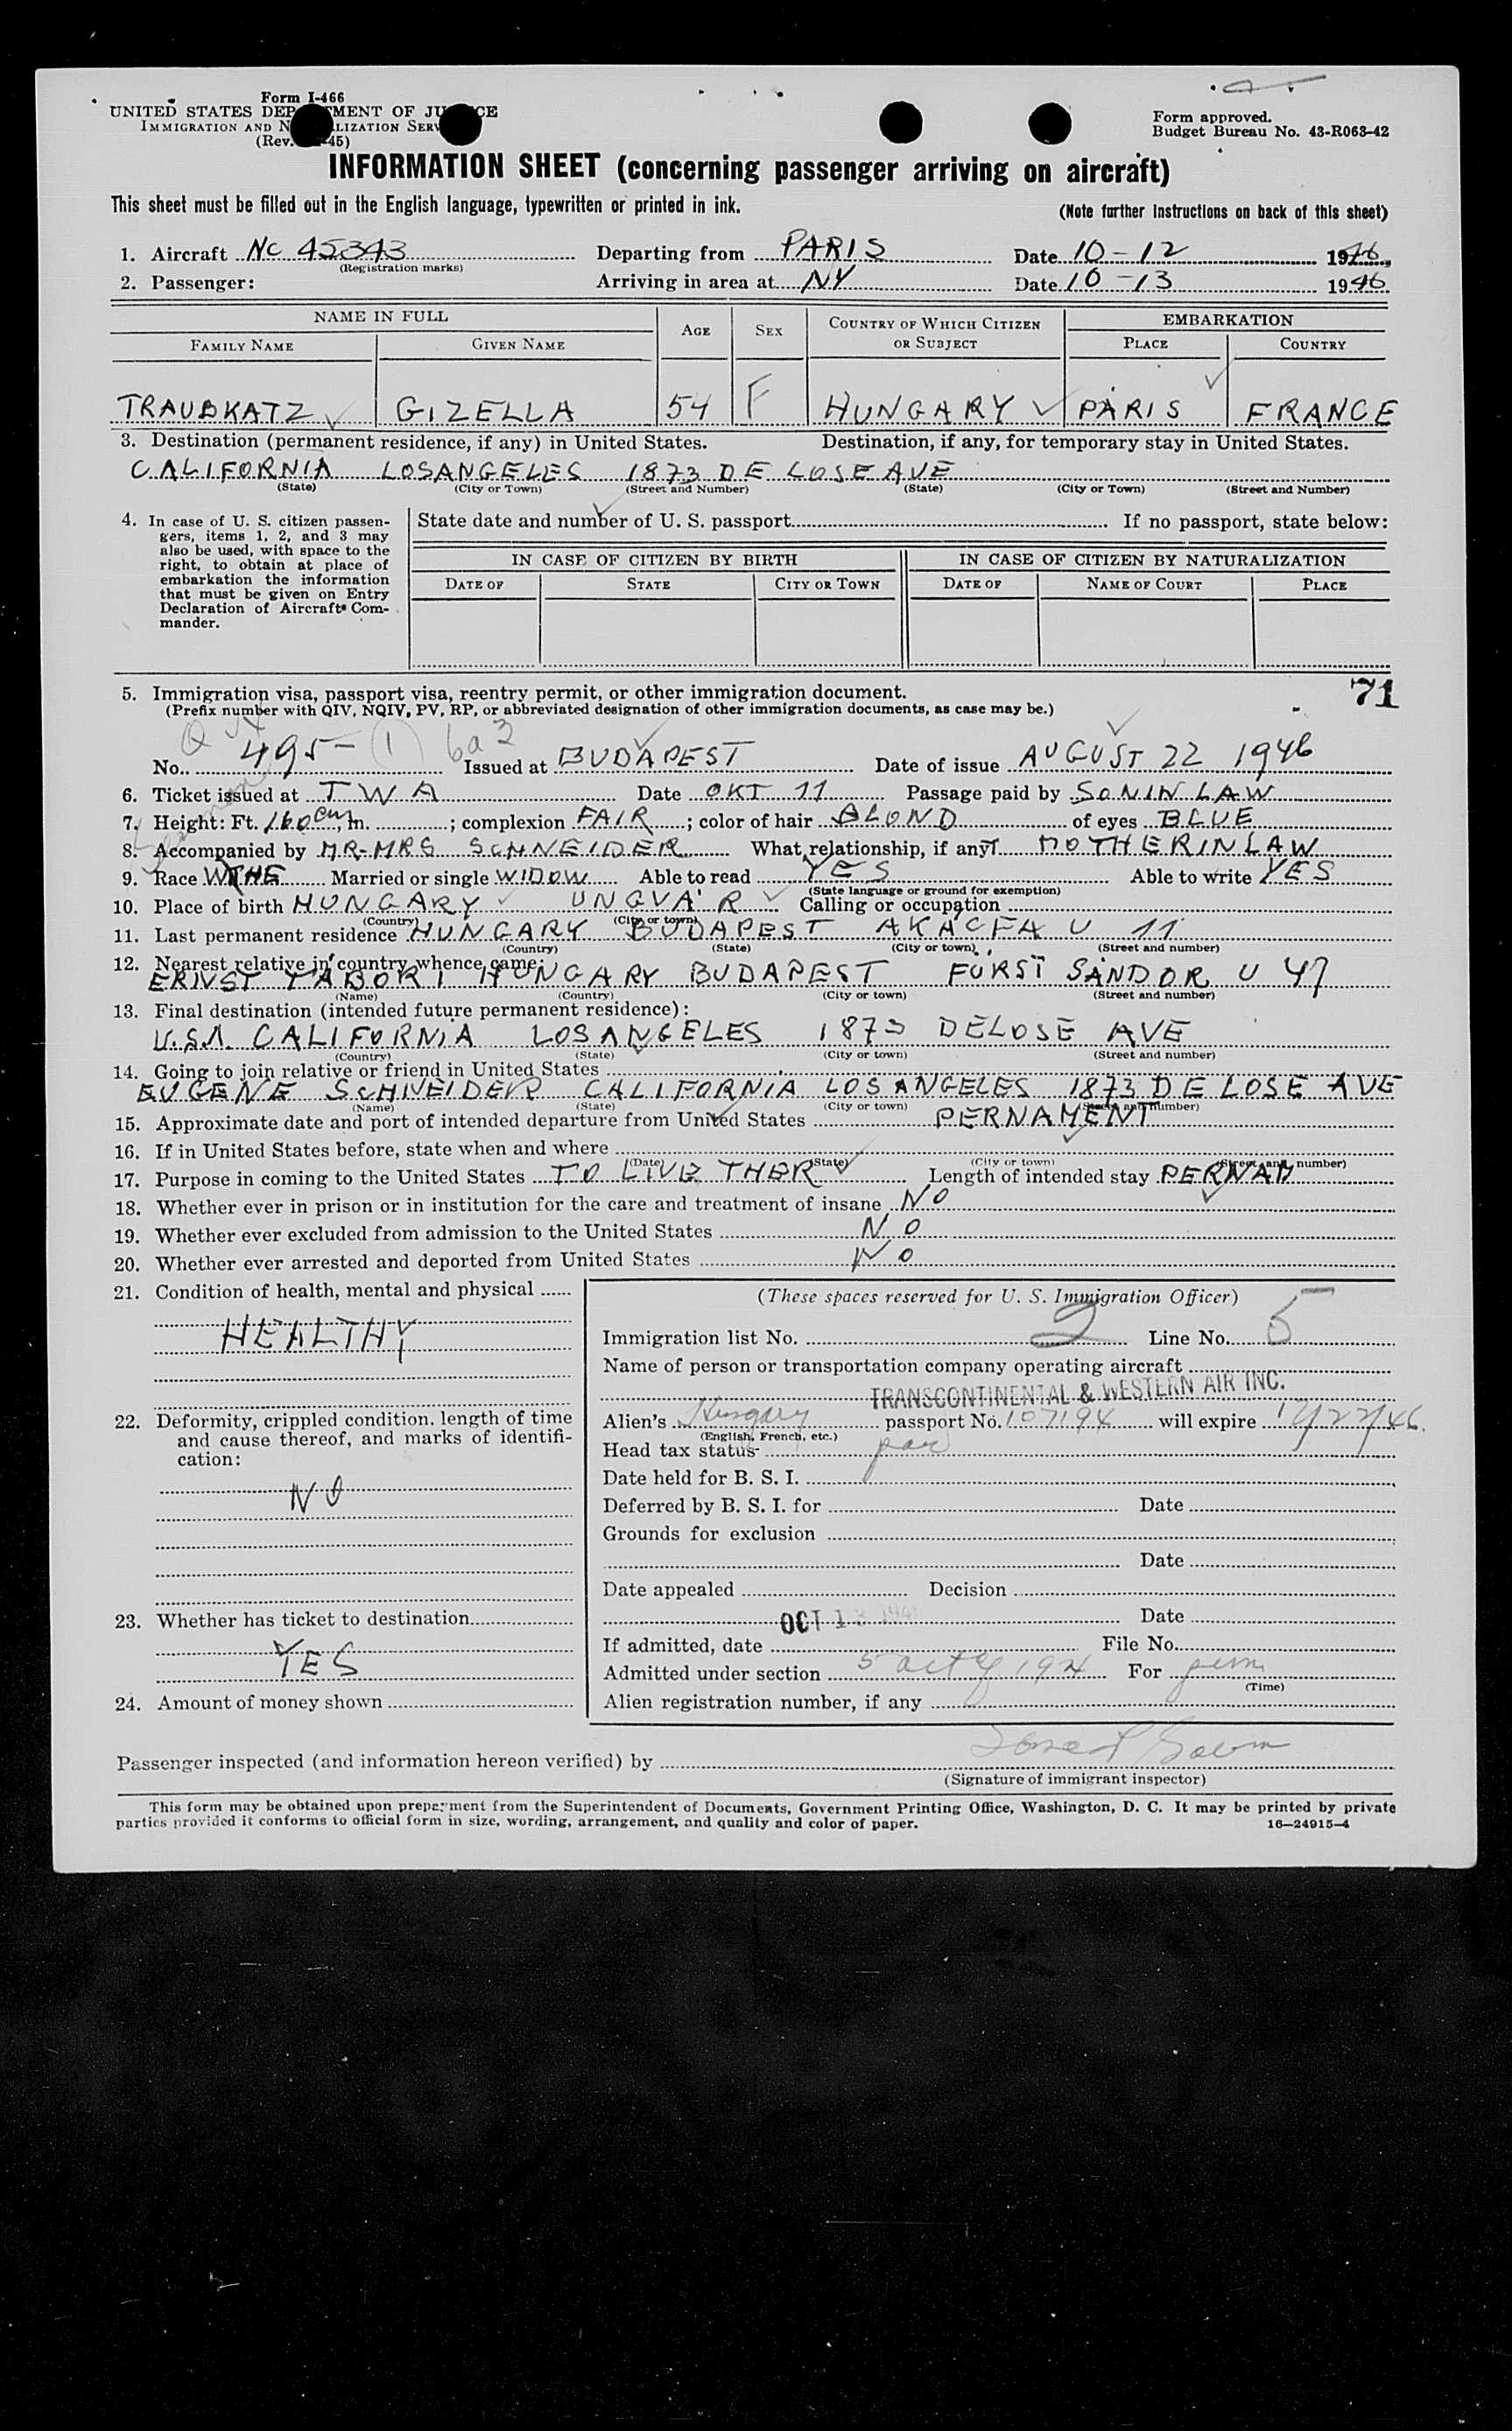 Form I-466
UNITED STATES DEP MENT OF JU CE
IMMIGRATION AND N LIZATION SERV
(Rev. 45)
Form approved.
Budget Bureau No. 43-R063-42
INFORMATION SHEET (concerning passenger arriving on aircraft)
This sheet must be filled out in the English language, typewritten or printed in ink.
(Note further instructions on back of this sheet)
1. Aircraft NC 45343 Departing from PARIS Date 10-12 1946
(Registration marks)
2. Passenger: Arriving in area at NY Date 10-13 1946
NAME IN FULL AGE SEX COUNTRY OF WHICH CITIZEN OR SUBJECT EMBARKATION
FAMILY NAME GIVEN NAME PLACE COUNTRY
TRAUBKATZ GIZELLA 54 F HUNGARY PARIS FRANCE
3. Destination (permanent residence, if any) in United States. Destination, if any, for temporary stay in United States.
CALIFORNIA LOSANGELES 1873 DE LOSE AVE
(State) (City or Town) (Street and Number) (State) (City or Town) (Street and Number)
4. In case of U. S. citizen passen-
gers, items 1, 2, and 3 may
also be used, with space to the
right, to obtain at place of
embarkation the information
that must be given on Entry
Declaration of Aircraft Com-
mander.
State date and number of U. S. passport If no passport, state below:
IN CASE OF CITIZEN BY BIRTH IN CASE OF CITIZEN BY NATURALIZATION
DATE OF STATE CITY OR TOWN DATE OF NAME OF COURT PLACE
5. Immigration visa, passport visa, reentry permit, or other immigration document. 71
(Prefix number with QIV, NQIV, PV, RP, or abbreviated designation of other immigration documents, as case may be.)
No. 495- (1) 6a3 Issued at BUDAPEST Date of issue AUGUST 22 1946
6. Ticket issued at TWA Date OKT 11 Passage paid by SONIN LAW
7. Height: Ft. 160 cm, In. ; complexion FAIR ; color of hair BLOND of eyes BLUE
8. Accompanied by MR-MRS SCHNEIDER What relationship, if any? MOTHERINLAW
9. Race WTHE Married or single WIDOW Able to read YES Able to write YES
(State language or ground for exemption)
10. Place of birth HUNGARY UNGVÁR Calling or occupation
(Country) (City or town)
11. Last permanent residence HUNGARY BUDAPEST AKÁCFA U 11
(Country) (State) (City or town) (Street and number)
12. Nearest relative in country whence came:
ERNST TABORI HUNGARY BUDAPEST FÜRST SÁNDOR U 47
(Name) (Country) (City or town) (Street and number)
13. Final destination (intended future permanent residence):
U.S.A. CALIFORNIA LOS ANGELES 1873 DELOSE AVE
(Country) (State) (City or town) (Street and number)
14. Going to join relative or friend in United States
EUGENE SCHNEIDER CALIFORNIA LOS ANGELES 1873 DE LOSE AVE
(Name) (State) (City or town) (Street and number)
15. Approximate date and port of intended departure from United States PERNAMENT
16. If in United States before, state when and where
(Date) (State) (City or town) (Street and number)
17. Purpose in coming to the United States TO LIVE THER Length of intended stay PERNAM
18. Whether ever in prison or in institution for the care and treatment of insane NO
19. Whether ever excluded from admission to the United States NO
20. Whether ever arrested and deported from United States NO
21. Condition of health, mental and physical
HEALTHY
22. Deformity, crippled condition. length of time
and cause thereof, and marks of identifi-
cation:
NO
23. Whether has ticket to destination
YES
24. Amount of money shown
(These spaces reserved for U. S. Immigration Officer)
Immigration list No. 2 Line No. 5
Name of person or transportation company operating aircraft
TRANSCONTINENTAL & WESTERN AIR INC.
Alien's Hungary passport No. 107194 will expire 12/22/46.
(English, French, etc.)
Head tax status
Date held for B. S. I.
Deferred by B. S. I. for Date
Grounds for exclusion
Date
Date appealed Decision
OCT 13 194 Date
If admitted, date File No.
Admitted under section 5 act of 1924 For perm
(Time)
Alien registration number, if any
Passenger inspected (and information hereon verified) by
(Signature of immigrant inspector)
This form may be obtained upon prepayment from the Superintendent of Documents, Government Printing Office, Washington, D. C. It may be printed by private
parties provided it conforms to official form in size, wording, arrangement, and quality and color of paper. 16—24915-4